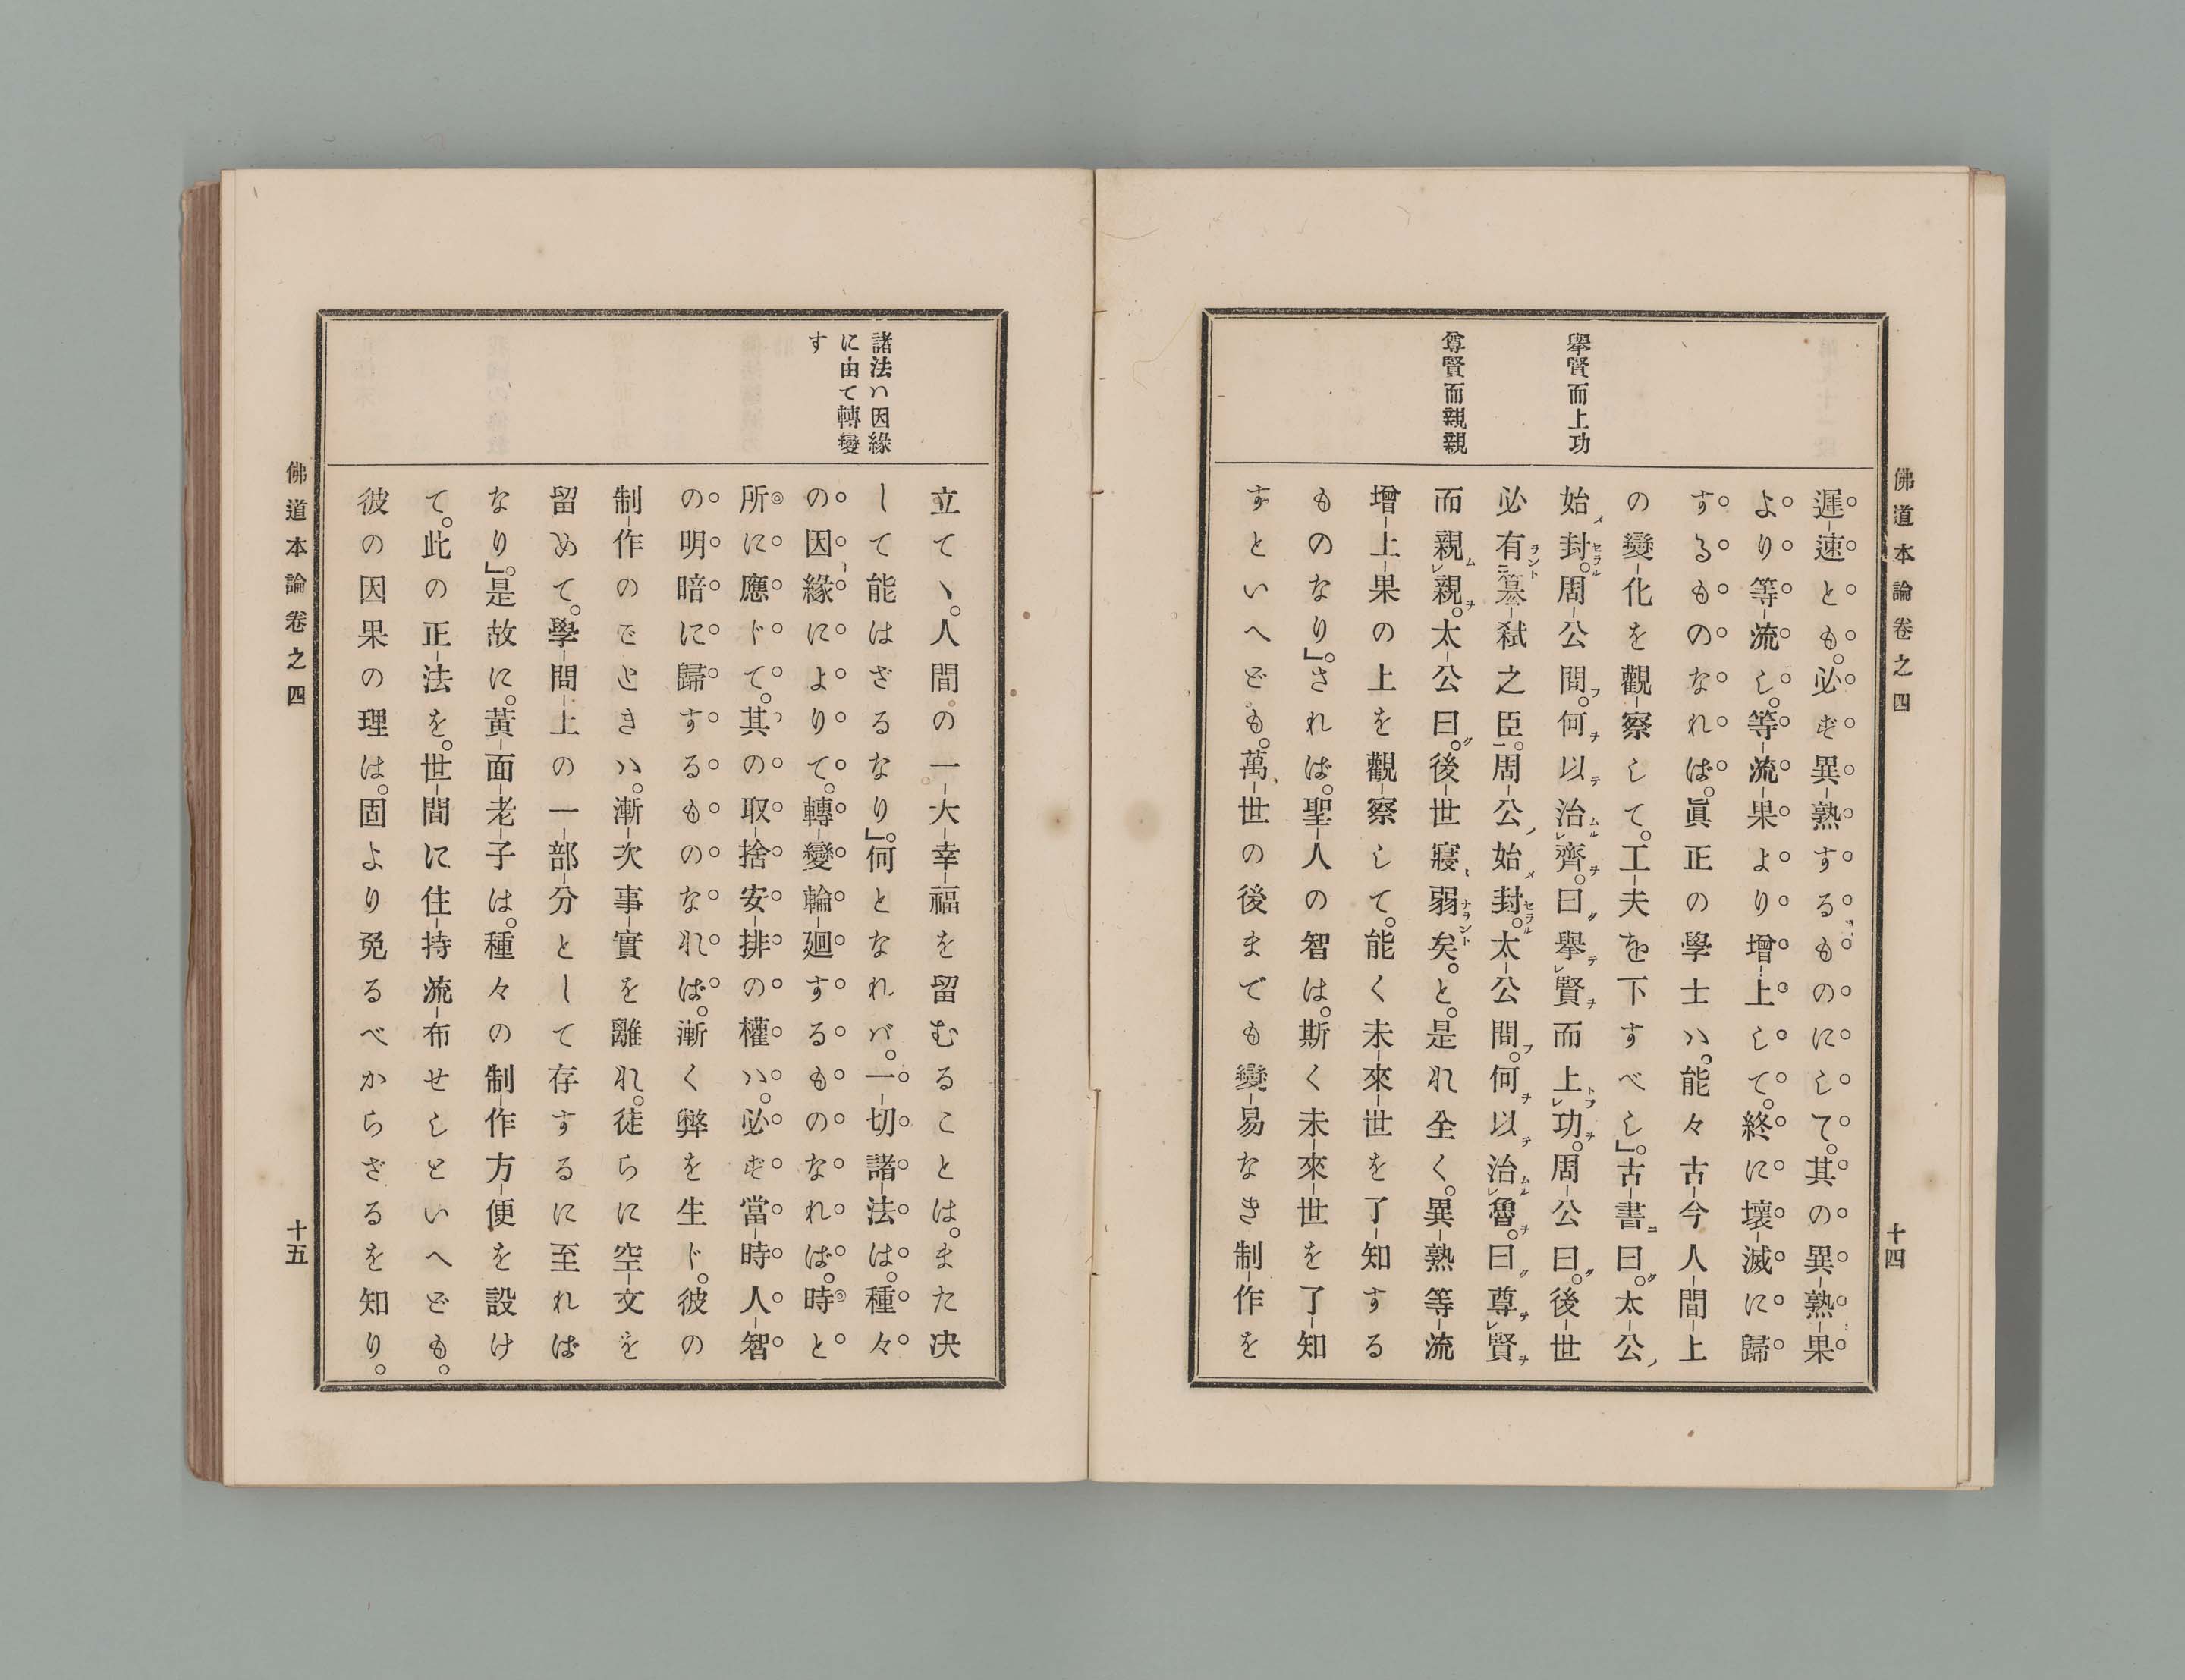 佛道本論卷之四
十四
擧賢而上功
尊賢而親親
遲速とも。必ず異熟するものにして。其の異熟果
より等流し。等流果より增上して。終に壞滅に歸
するものなれば。眞正の學士ハ。能々古今人間上
の變化を觀察して。工夫を下すべし」。古書ニ曰ク。太公ノ
始メ封セラル。周公問フ。何ヲ以テ治ムルレ齊ヲ。曰ク擧テレ賢ヲ而上トフレ功ヲ。周公曰ク。後世
必有ヲント二簒弑之臣一。周公ノ始メ封セラル。太公問フ。何ヲ以テ治ムルレ魯ヲ。曰ク尊テレ賢ヲ
而親ムレ親ヲ。太公曰ク。後世寢ミ弱ナラント矣。と。是れ全く。異熟等流
增上果の上を觀察して。能く未來世を了知する
ものなり」。されば。聖人の智は。斯く未來世を了知
すといへども。萬世の後までも變易なき制作を
諸法ハ因緣
に由て轉變
す
立てヽ。人間の一大幸福を留むることは。また決
して能はざるなり」。何となれバ。一切諸法は。種々
の因緣によりて。轉變輪廻するものなれば。時と
所に應ドて。其の取捨安排の權ハ。必ず當時人智
の明暗に歸するものなれば。漸く弊を生ド。彼の
制作のでときハ。漸次事實を離れ。徒らに空文を
留めて。學問上の一部分として存するに至れば
なり」。是故に。黃面老子は。種々の制作方便を設け
て。此の正法を。世間に住持流布せしといへども。
彼の因果の理は。固より免るべからざるを知り。
佛道本論卷之四
十五